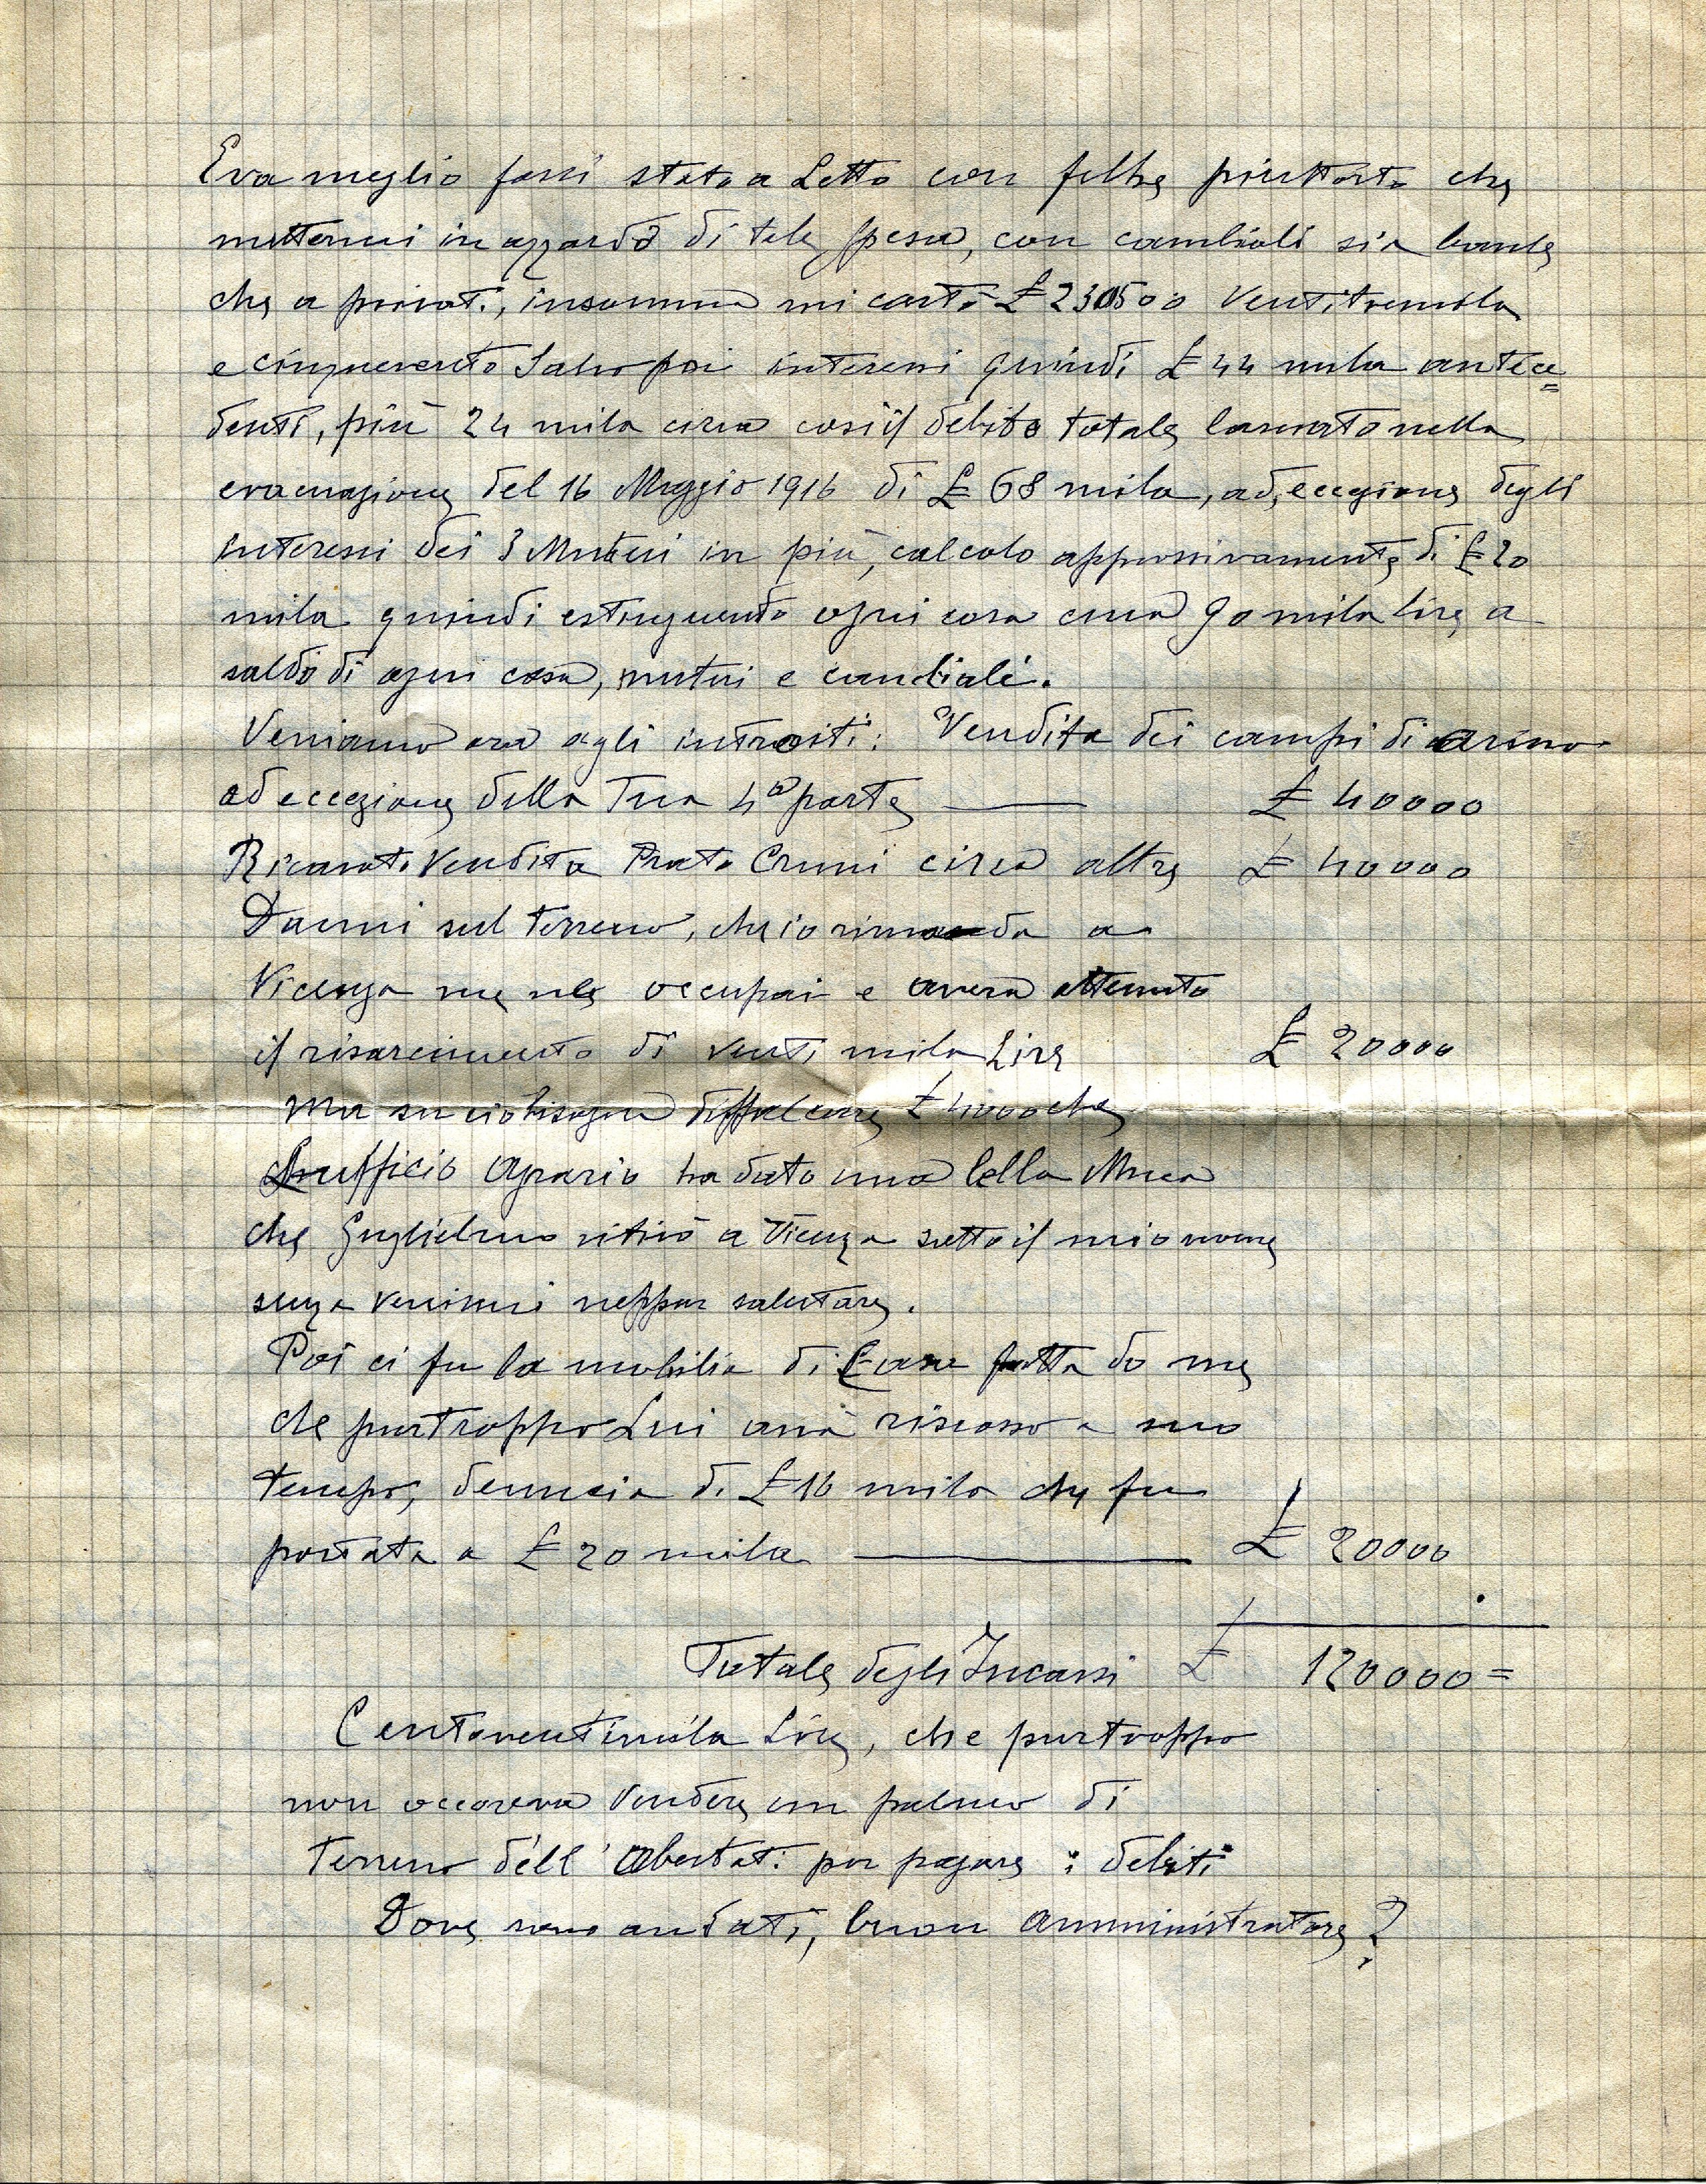 Era meglio fossi stata a Letto con febbre piuttosto che
mettermi in azzardo di tale spesa, con cambiali sia banche
che a privati, insomma mi costò £ 23500 Ventitremila
e cinquecento Salvo poi interessi quindi £ 44 mila antece=
denti, più 24 mila circa così il debito totale lasciato nella
evacuazione del 16 Maggio 1916 di £ 68 mila, ad eccezione degli
interessi dei 3 Mutui in più, calcolo approssivamente di £ 20
mila quindi estinguendo ogni cosa circa 90 mila lire a
saldo di ogni cosa, mutui e cambiali.
Veniamo ora agli introiti: Vendita dei campi di arsiero
ad eccezione della Tua 4ª parte £ 40000
Ricavato Vendita Prato Cruni circa altre £ 40000
Danni sul terreno, che io a
Vicenza me ne occupai e aveva ottenuto
il risarcimento di venti mila Lire £ 20000
Ma su ciò bisogna diffalcare £ 4000 che
L'ufficio Agrario ha dato una bella Muca
che Guglielmo ritirò a Vicenza sotto il mio nome
senza venirmi neppur salutare.
Poi ci fu la mobilia di Casa fatta da me
che purtroppo Lui avrà riscosso a suo
tempo, denuncia di £ 16 mila che fu
portata a £ 20 mila £ 20000
Totale degli Incassi £ 120000=
Centoventimila Lire, che purtroppo
non occoreva Vendere un palmo di
terreno dell' Albertati per pagare i debiti
Dove sono andati, buon Amministratore?